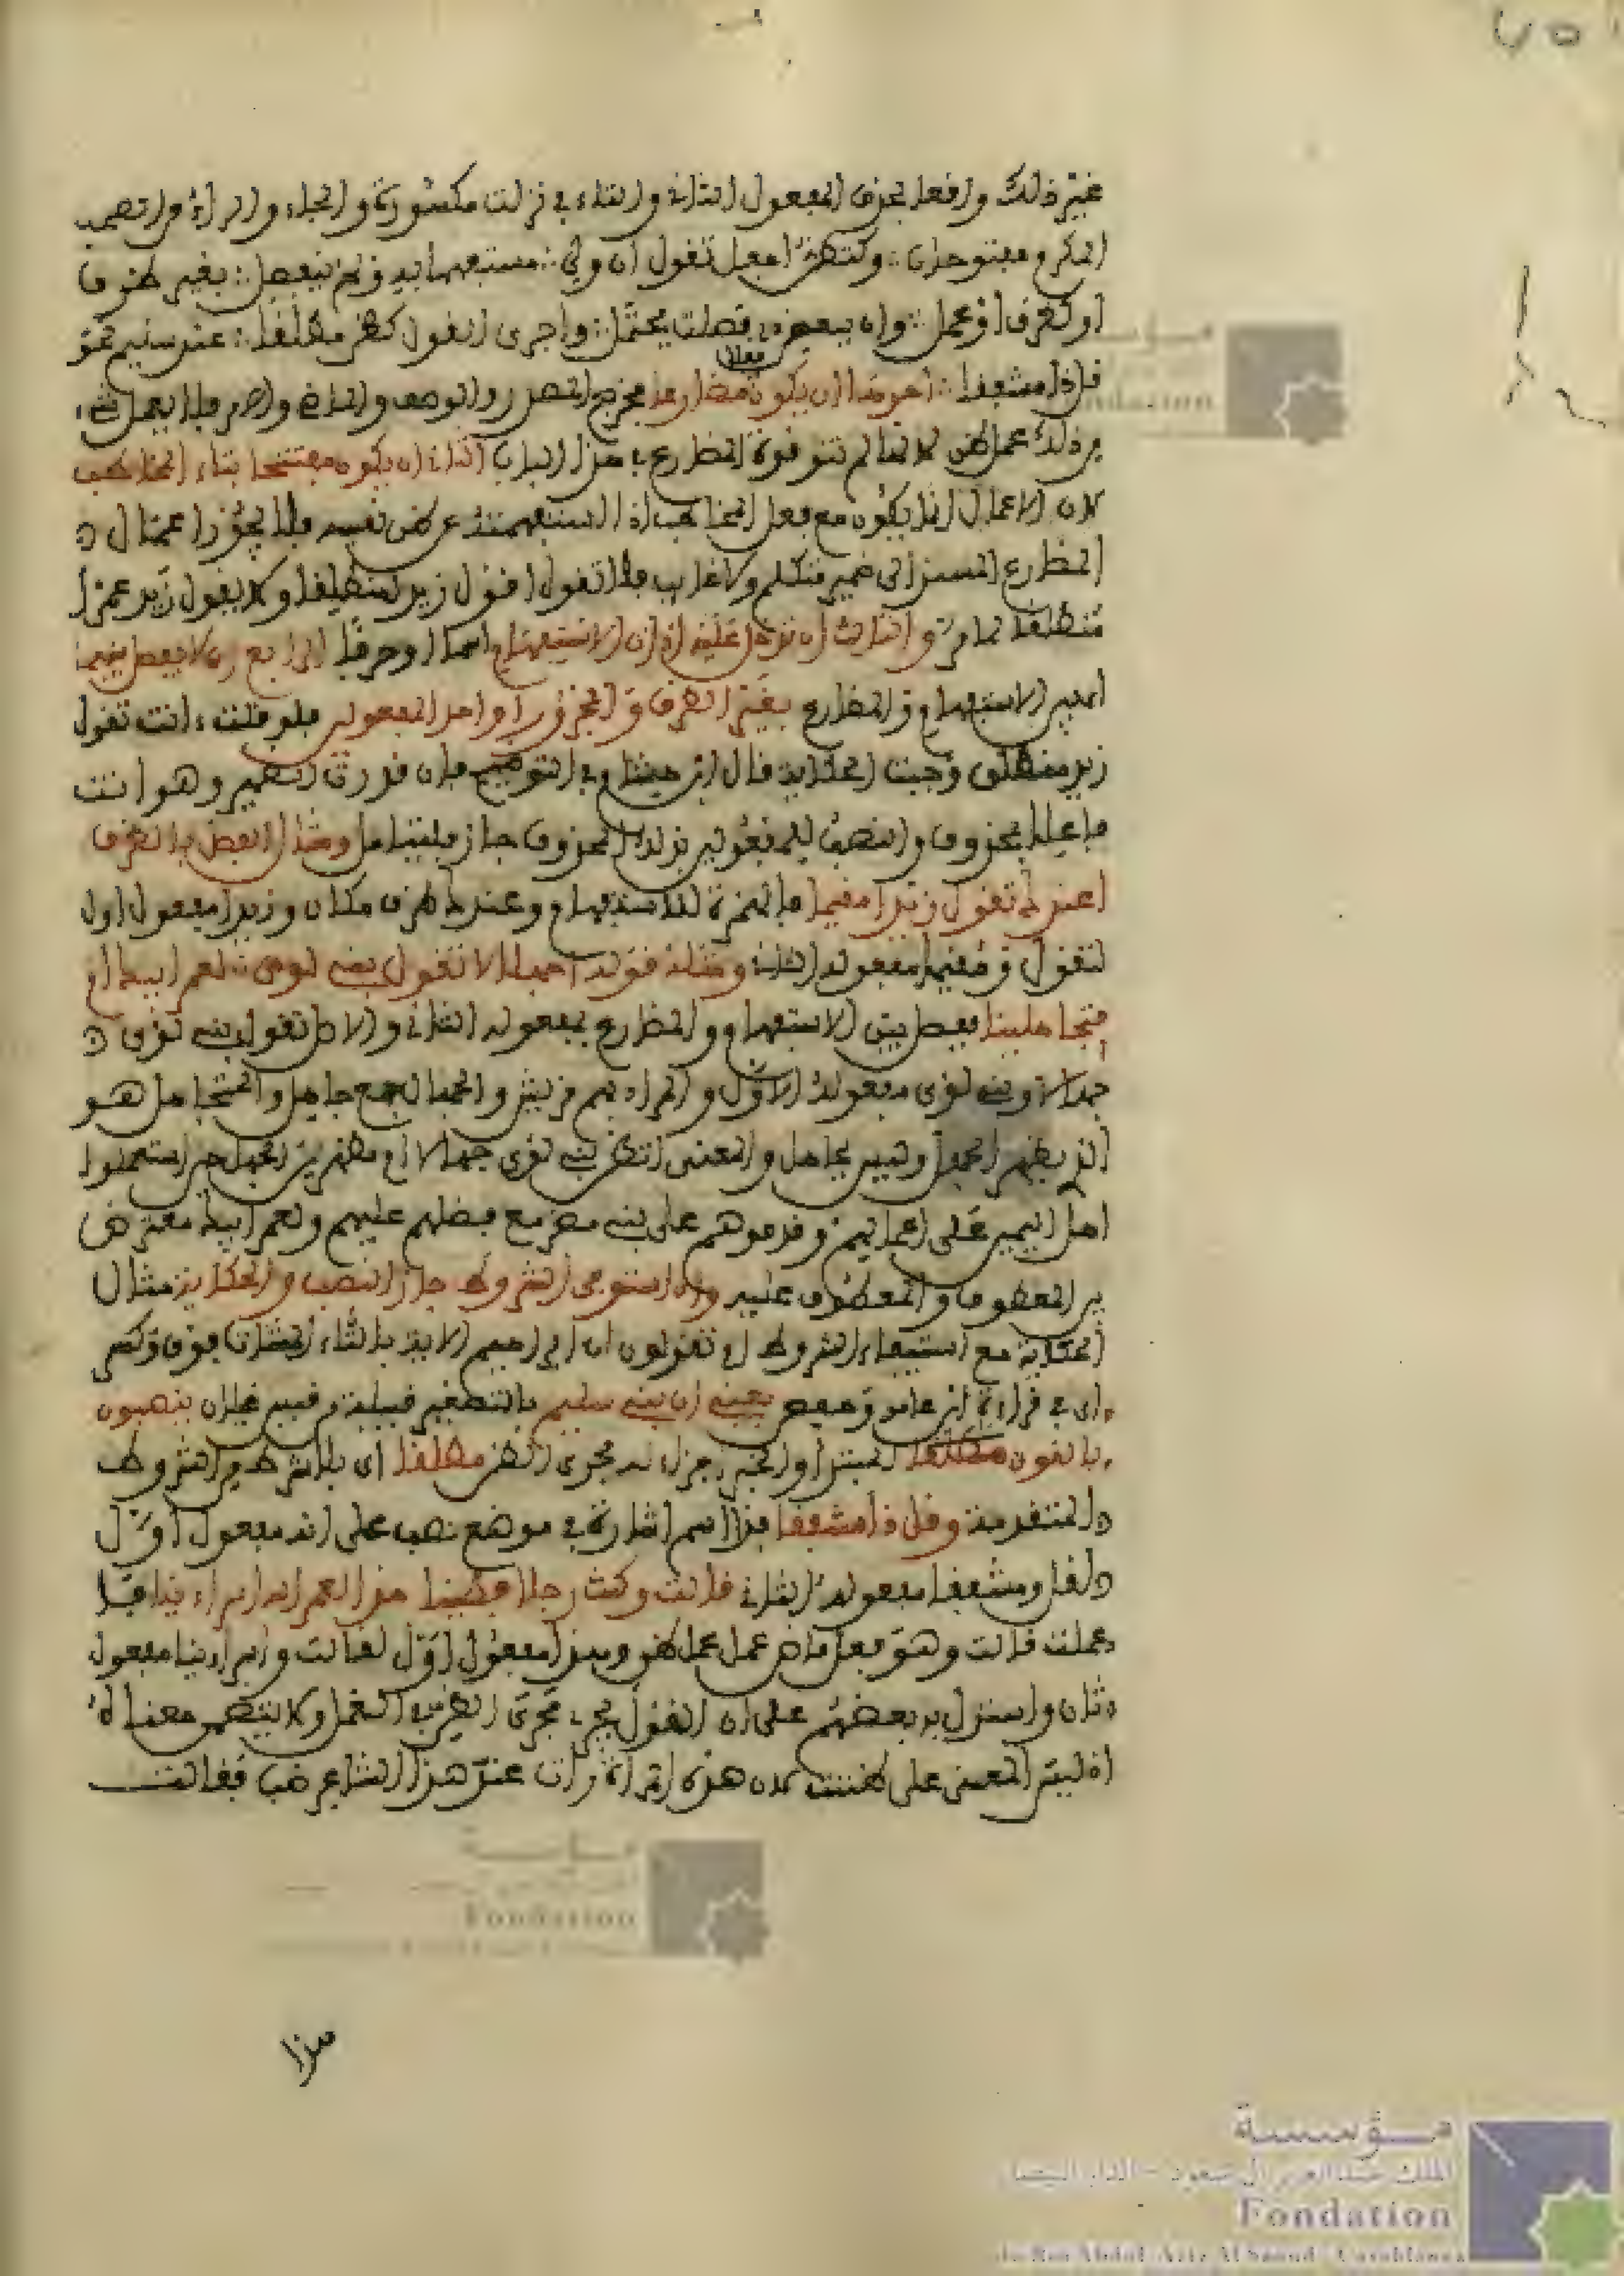 غير ذلك وافعلا بحذف المفعول الثاني والتاء في نزلت مكسورة والحاء والراء من المحب
المكرم مفتوحتان وكتظن اجعل تقول ان ولي مستفهما به ولم ينفصل بغير ظرف
او كظرف او عمل وان ببعض ذي فصلت يحتمل واجري القول كظن مطلقا عند سليم نحو
قل ذا مشفقا احدها ان يكون مضارعا مخرج المصدر والوصف والماضي والامر فلا يعمل شيء
من ذلك عمل ظن لانها لم تقو قوة المضارع في هذا الباب الثاني ان يكون مفتتحا بتاء المخاطب
لان الاعمال انما يكون مع فعل المخاطب اذا استفهمته عن ظن نفسه فلا يجوز اعمال
المضارع المسند الى ضمير متكلم ولا غايب فلا تقول اقول زيد منطلقا ولا يقول زيد عمرا
منطلقا لما مر والثالث ان تدخل عليه اداة الاستفهام اسما او حرفا الرابع ان لا يفصل بينهما
اي بين الاستفهام والمضارع بغير الظرف والمجرور او احد المفعولين فلو قلت ءانت تقول
زيد منطلق وجبت الحكاية قال ابن هشام في التوضيح فان قدرت الضمير وهو انت
فاعلا بمحذوف والنصب للمفعولين بذلك المحذوف جاز فليتامل ومثال الفصل بالظرف
اعندك تقول زيدا مقيما فالهمزة للاستفهام وعندك ظرف مكان وزيدا مفعول اول
لتقول ومقيما مفعوله الثاني ومثله قوله اجهالا تقول بني لوي لعمر ابيك ام
متجاهلينا ففصل بين الاستفهام والمضارع بمفعوله الثاني والاصل تقول بني لوي
جهالا وبني لوي مفعوله الاول والمراد بهم قريش والجهال جمع جاهل والمتجاهل هو
الذي يظهر الجهل وليس بجاهل والمعنى اتظن بني لوي جهالا ام مظهرين الجهل حين استعملوا
اهل اليمن على اعمالهم وقدموهم على بني مضر مع فضلهم عليهم ولعمر ابيك معترض
بين المعطوف والمعطوف عليه واذا استوفى الشروط جاز النصب والحكاية مثال
الحكاية مع استيفاء الشروط ام تقولون ان ابراهيم الاية بالتاء المثناة فوق وكسر
ان في قراءة ابن عامر وحفص يعني ان بني سليم بالتصغير قبيلة من قيس غيلان ينصبون
بالقول مطلقا المبتدا والخبر اجراء له مجرى الظن مطلقا اي بلا شرط من الشروط
المتقدمة وقل ذا مشفقا فذا اسم اشارة في موضع نصب على انه مفعول اول
لقل ومشفقا مفعوله الثاني قالت وكنت رجلا فطينا هذا لعمر الله اسراءينا قد
عملت قالت وهو فعل ماض عمل عمل ظن وهذا مفعول اول لقالت واسراءينا مفعول
ثان واستدل به بعضهم على ان القول يجري مجرى الظن في العمل ولا يتضمن معناه
اذ ليس المعنى على ظننت لان هذه امراة رات عند هذا الشاعر ضبا فقالت
هذا
مؤسسة
الملك عبد العزيز آل سعود - الدار البيضاء
Fondation
du Roi Abdul Aziz Al Saoud Casablanca